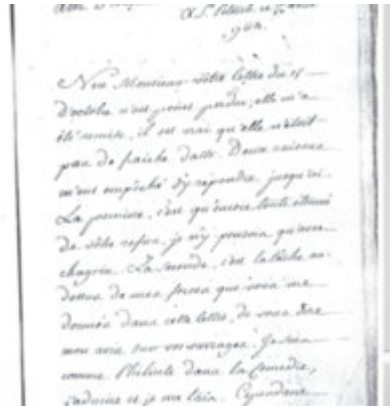 Non Monsieur vôtre lettre du 15
d'octobre n'est point perdue, elle m'a
été remise, il est vrai qu'elle n'étoit
pas de fraiche datte. Deux raisons
m'ont empêché d'y répondre jusqu'ici.
La premiere, c'est qu'encore toute
de vôtre refus, je n'y pouvois qu'avec
chagrin. La seconde, c'est la tâche au-
dessus de mes forces que vous me
donnés dans cette lettre, de vous dire
mon avis sur vos ouvrages. Je suis
comme Philinte dans la Comedie,
j'admire et je me tais. Cependant